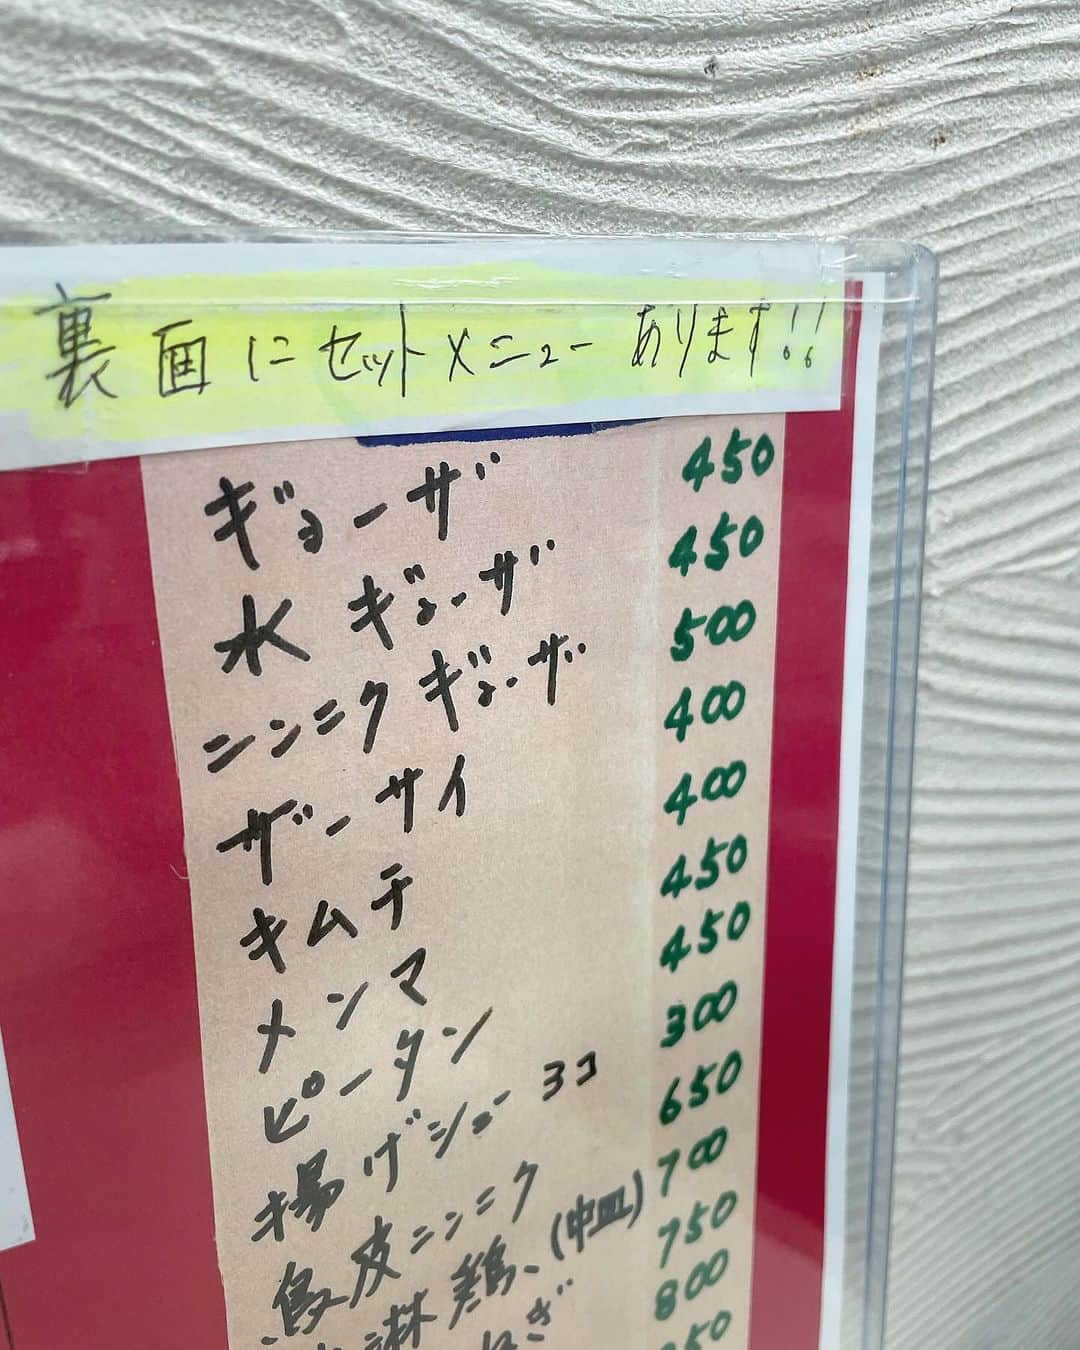 裏面にセットメニューあります!!
ギョーザ 450
水ギョーザ 450
ニンニクギョーザ 500
ザーサイ 400
キムチ 400
メンマ 450
ピータン 450
揚げシュー 3コ 300
鳥皮ニンニク 650
淋鶏 (中皿) 700
ねぎ 750
800